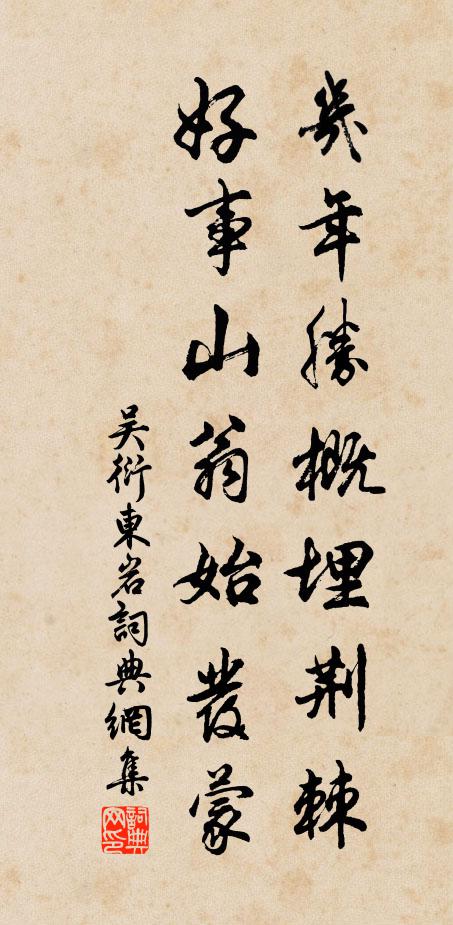 幾年勝概埋荆棘
好事山翁始發蒙
吴衍東岩詞典網集
詞典網印